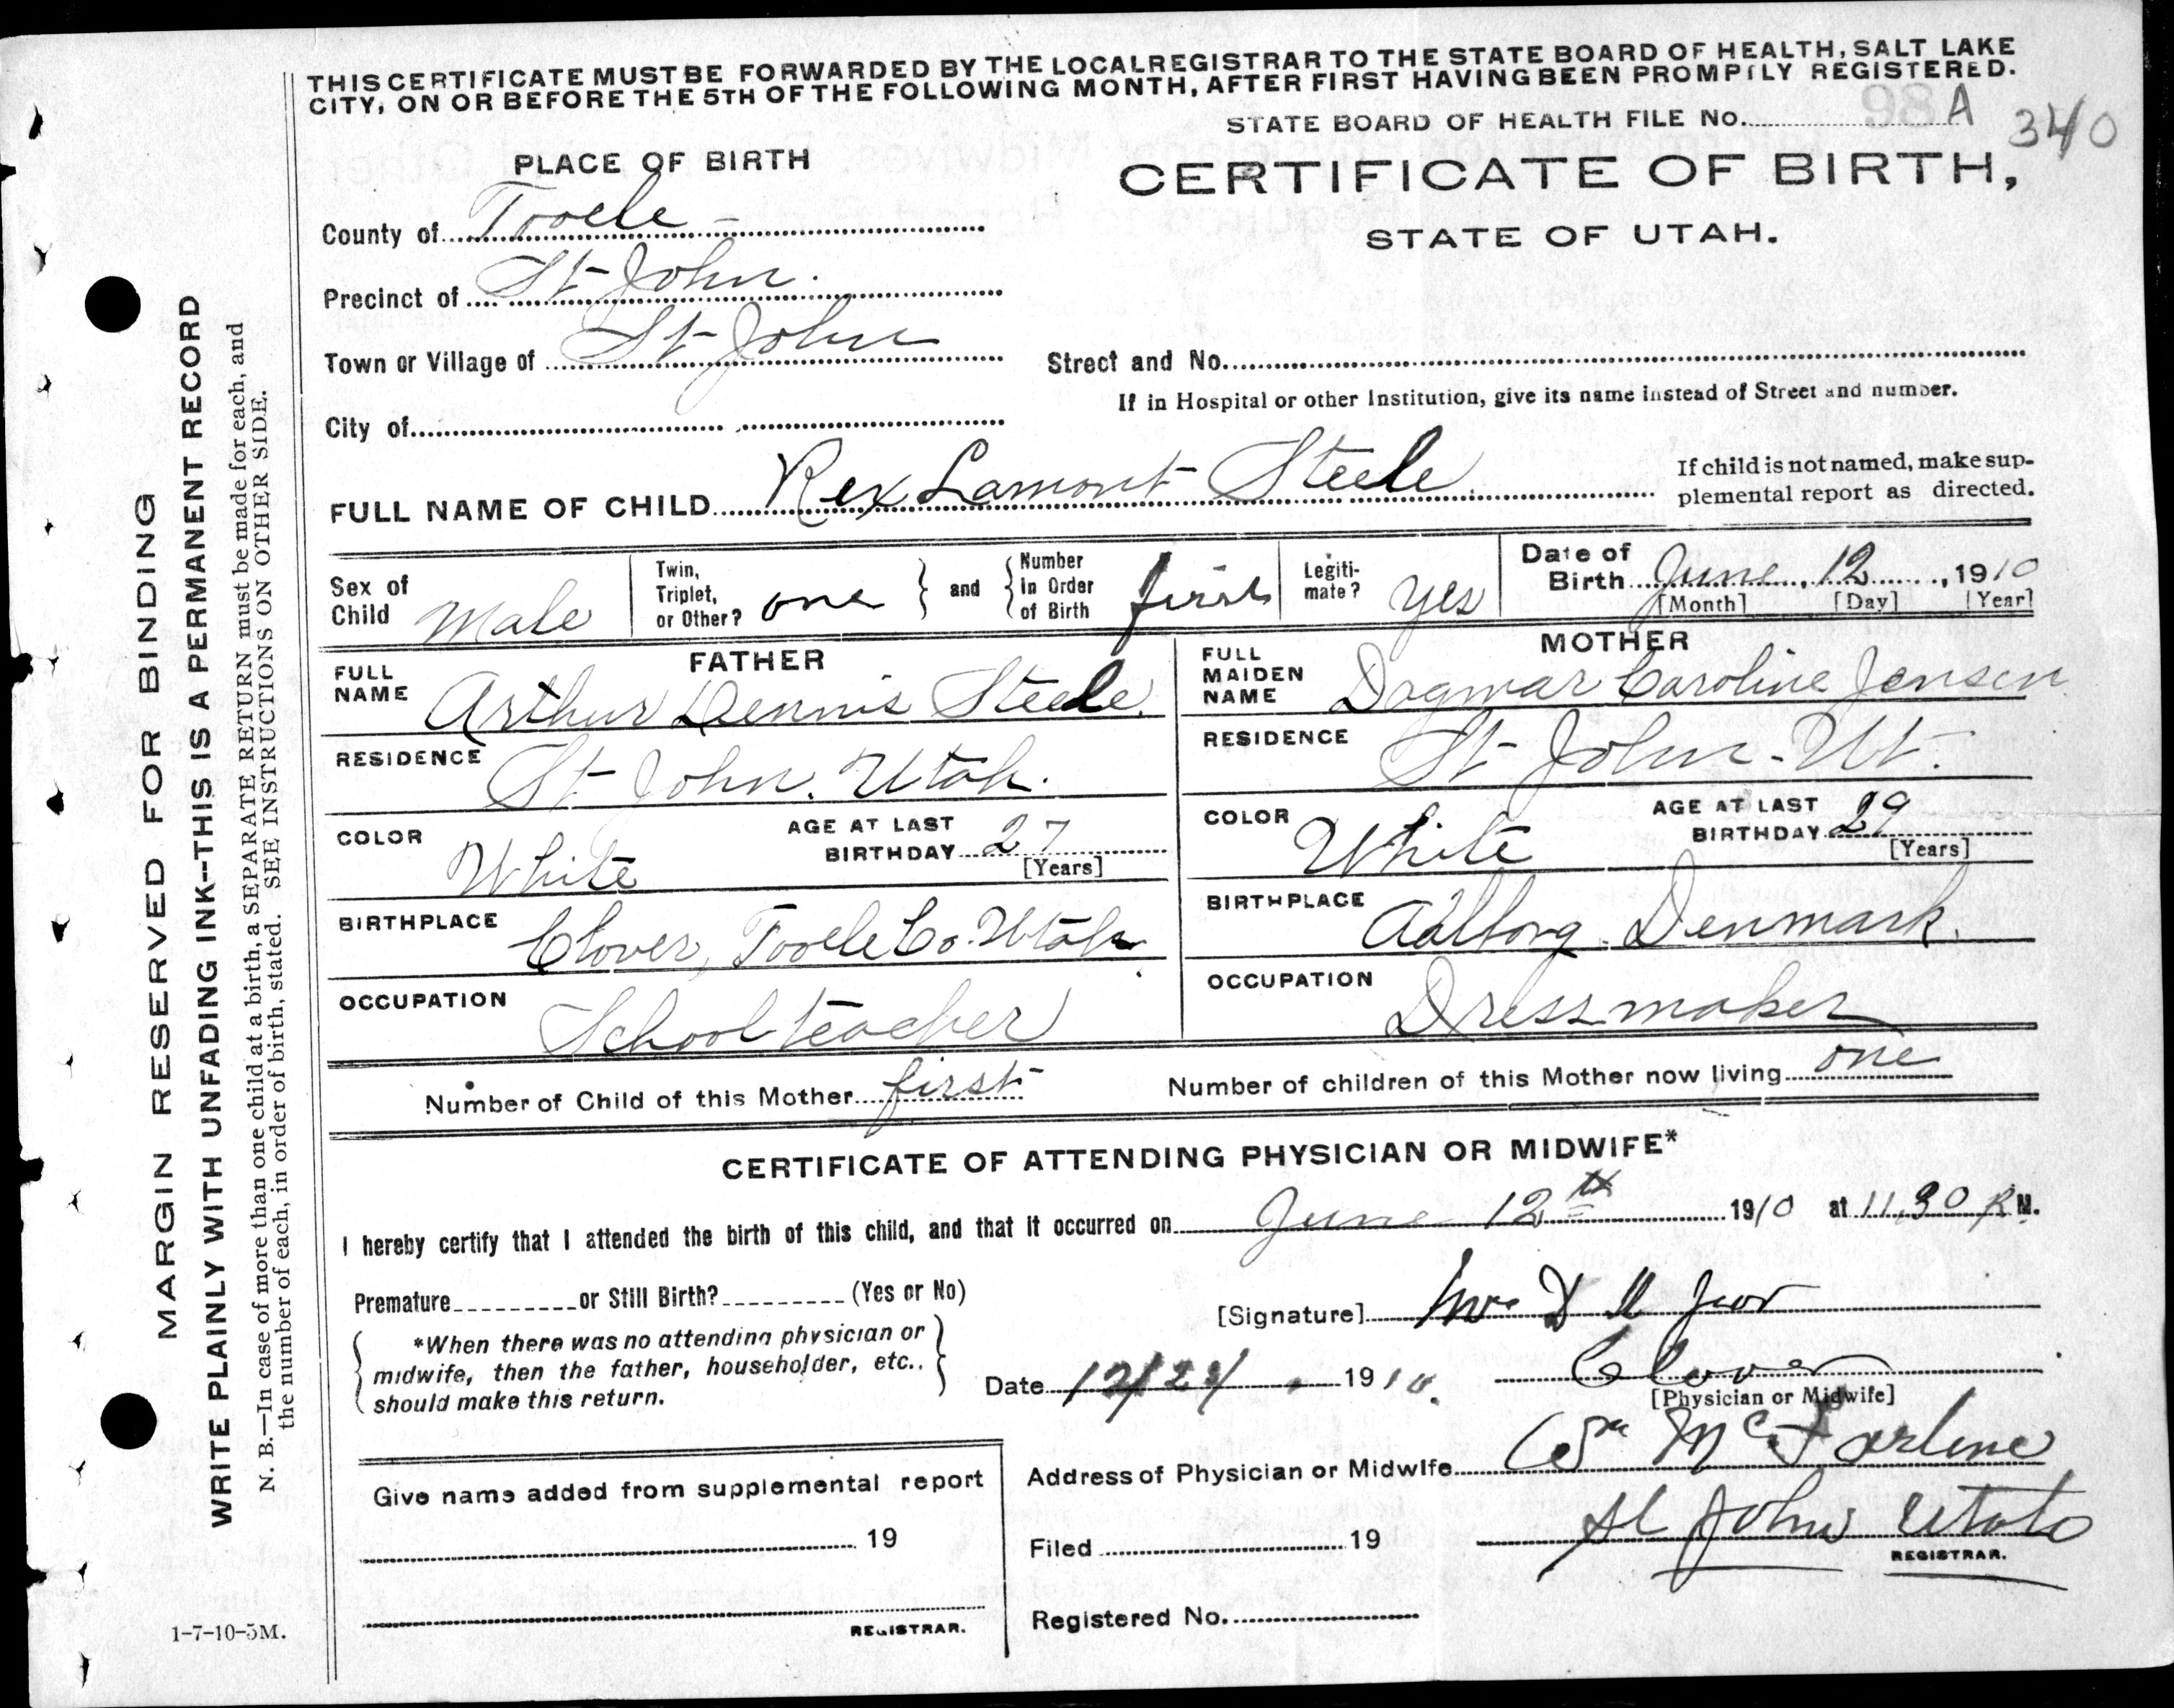 THIS CERTIFICATE MUST BE FORWARDED BY THE LOCAL REGISTRAR TO THE STATE BOARD OF HEALTH, SALT LAKE
CITY, ON OR BEFORE THE 5TH OF THE FOLLOWING MONTH, AFTER FIRST HAVING BEEN PROMPTLY REGISTERED.
STATE BOARD OF HEALTH FILE No. 98 A 340
PLACE OF BIRTH
CERTIFICATE OF BIRTH,
STATE OF UTAH.
County of Tooele
Precinct of St John.
Town or Village of St John
Street and No.
If in Hospital or other Institution, give its name instead of Street and number.
City of
FULL NAME OF CHILD Rex Lamont Steele
If child is not named, make sup-
plemental report as directed.
Sex of Child Male
Twin, Triplet, or Other? one and Number in Order of Birth first
Legiti-mate? yes
Date of Birth June, 12, 1910
[Month] [Day] [Year]
FATHER
FULL NAME Arthur Dennis Steele.
RESIDENCE St John. Utah.
COLOR White
AGE AT LAST BIRTHDAY 27 [Years]
BIRTHPLACE Clover, Tooele Co. Utah
OCCUPATION School teacher
MOTHER
FULL MAIDEN NAME Dagmar Caroline Jensen
RESIDENCE St John - Ut.
COLOR White
AGE AT LAST BIRTHDAY 29 [Years]
BIRTHPLACE Aalborg Denmark.
OCCUPATION Dressmaker
Number of Child of this Mother first
Number of children of this Mother now living one
CERTIFICATE OF ATTENDING PHYSICIAN OR MIDWIFE*
I hereby certify that I attended the birth of this child, and that it occurred on June 12th 1910 at 11.30 P.M.
Premature or Still Birth? (Yes or No)
[Signature] Mrs D
*When there was no attending physician or
midwife, then the father, householder, etc.,
should make this return.
Date 1910.
Clover
[Physician or Midwife]
Address of Physician or Midwife Wm McFarlene
Give name added from supplemental report
19
REGISTRAR.
Filed 19
St Johns Utah
REGISTRAR.
Registered No.
1-7-10-5M.
MARGIN RESERVED FOR BINDING
WRITE PLAINLY WITH UNFADING INK--THIS IS A PERMANENT RECORD
N. B.—In case of more than one child at a birth, a SEPARATE RETURN must be made for each, and
the number of each, in order of birth, stated. SEE INSTRUCTIONS ON OTHER SIDE.